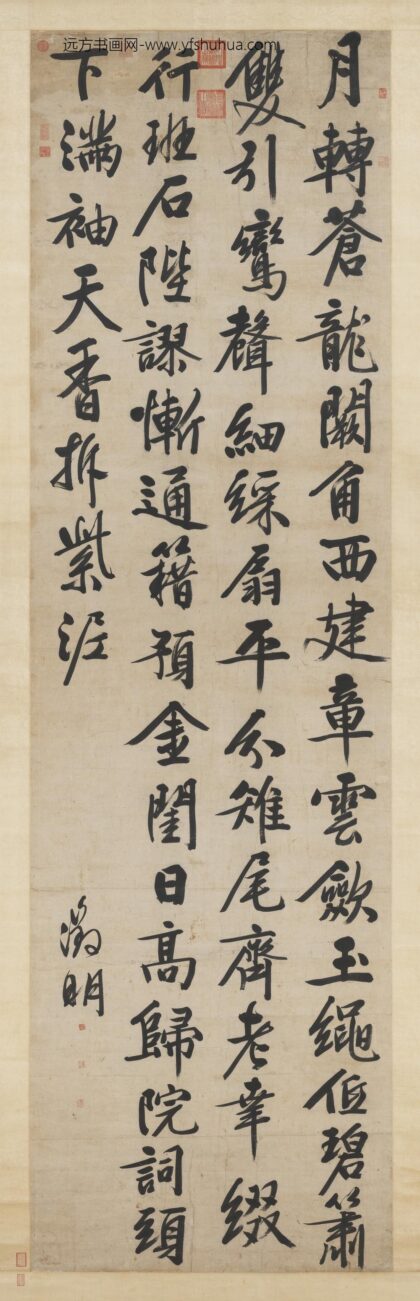 远方书画网-www.yfshuhua.com
月轉蒼龍闕角西建章雲歛玉繩低碧簫
雙引鸞聲細綵扇平分雉尾齊老幸綴
行班石陛謬慚通籍預金閨日高歸院詞頭
下滿袖天香拆紫泥
徵明